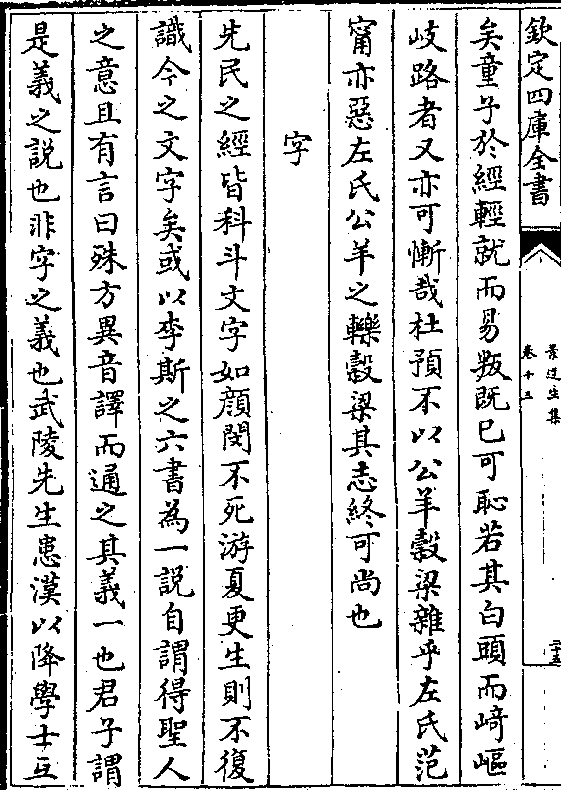 欽定四庫全書
景迂生集
卷十三
二十五
矣童子於經輕就而易叛既已可恥若其白頭而崎嶇
岐路者又亦可慚哉杜預不以公羊穀梁雜乎左氏范
甯亦惡左氏公羊之轢穀梁其志終可尚也
字
先民之經皆科斗文字如顔閔不死游夏更生則不復
識今之文字矣或以李斯之六書為一説自謂得聖人
之意且有言曰殊方異音譯而通之其義一也君子謂
是義之説也非字之義也武陵先生患漢以降學士互